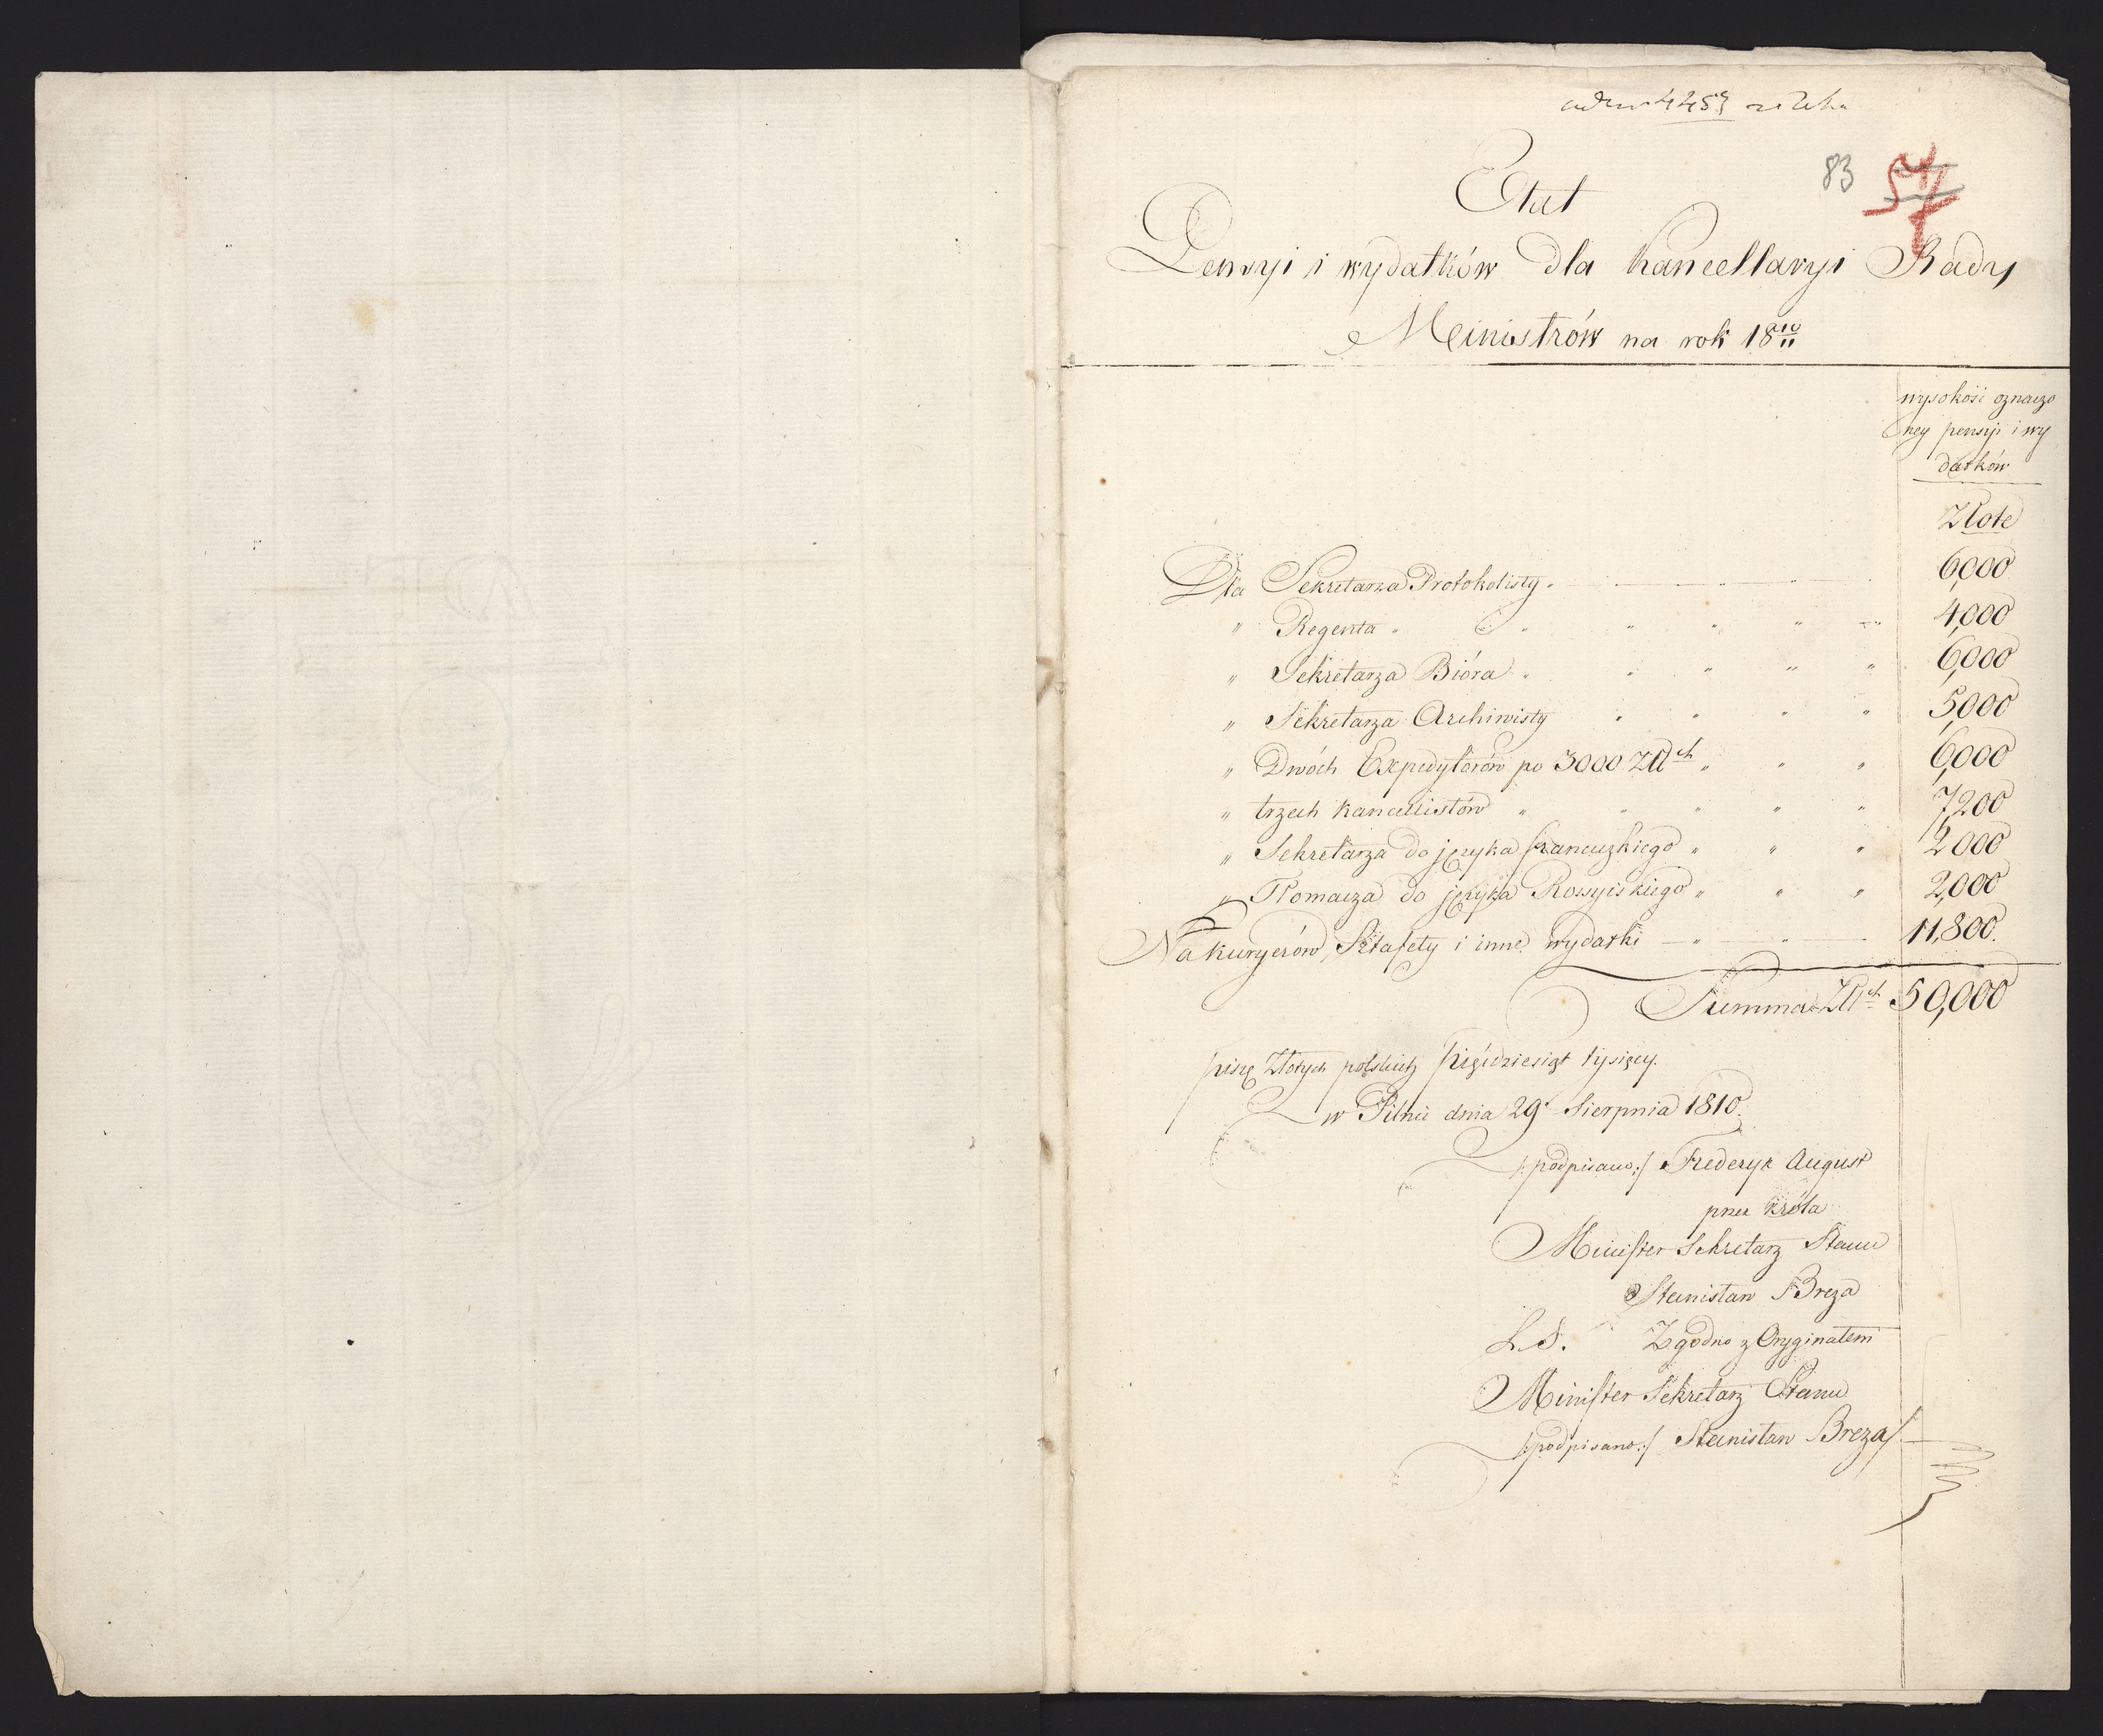 4453
83
Etat
Pensyi i wydatków dla Kancellaryi Rady
Ministrów na rok 18 10/11
wysokość oznaczo
ney pensyi i wy
datków
Złote
Dla Sekretarza Protokolisty 6,000
" Regenta 4,000
" Sekretarza Bióra 6,000
" Sekretarza Archiwisty 5,000
" Dwóch Expedytorów po 3000 Złch 6,000
" trzech Kancellistów 7,200
" Sekretarza do języka francuzkiego 2000
" Tłomacza do języka Rossyiskiego 2,000
Na Kuryerów, Sztafety i inne wydatki 11,800.
Summa Złch 50,000
piszę Złotych polskich pięćdziesiąt tysięcy.
w Pilnic dnia 29 Sierpnia 1810.
/:podpisano:/ Frederyk August
przez Króla
Minister Sekretarz Stanu
Stanisław Breza
L. S. Zgodno z Oryginałem
Minister Sekretarz Stanu
/:podpisano:/ Stanisław Breza/